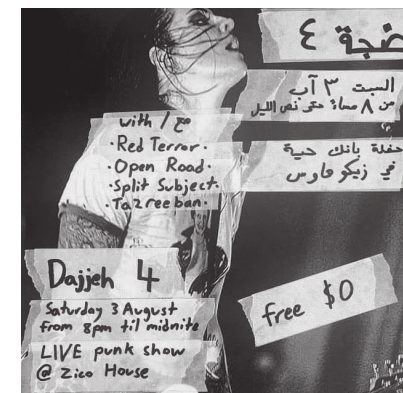 ضجة ٤
السبت ٣ آب
من ٨ مساءً حتى نص الليل
حفلة بانك حية
في زيكو هاوس
with / مع
· Red Terror ·
· Open Road ·
· Split Subject ·
· Tazreeban ·
Dajjeh 4
Saturday 3 August
from 8pm til midnite
LIVE punk show
@ Zico House
free $0